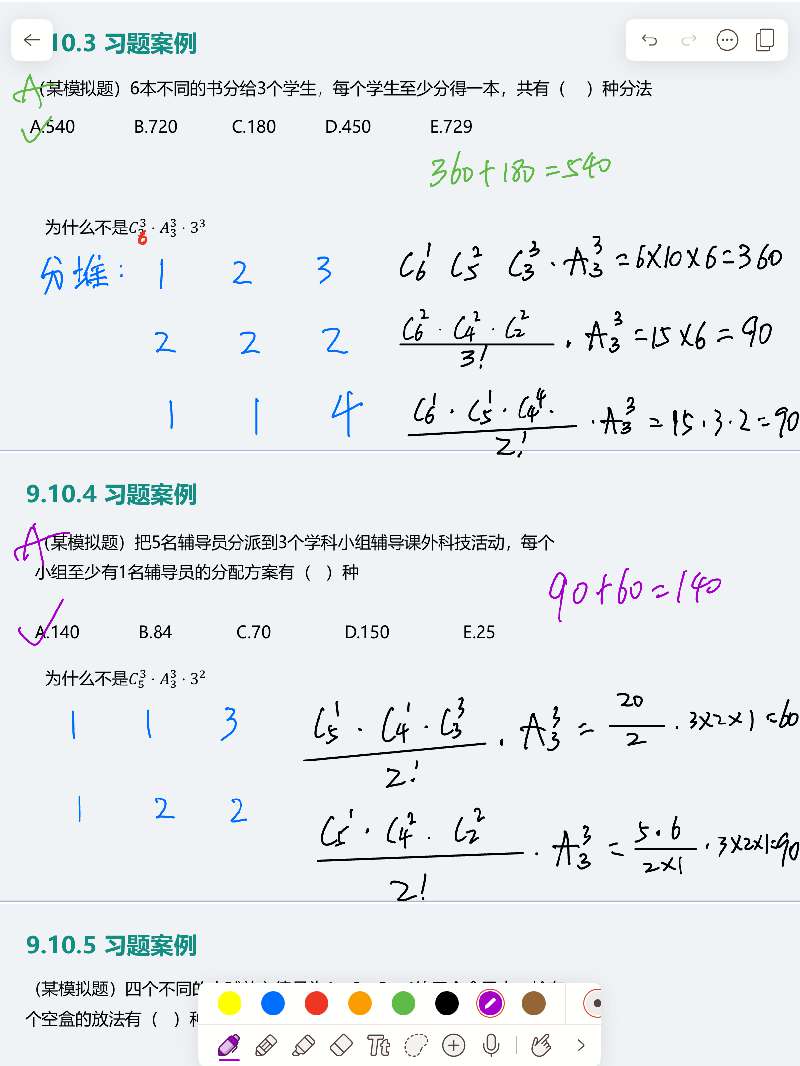 10.3 习题案例
A (某模拟题) 6本不同的书分给3个学生，每个学生至少分得一本，共有（ ）种分法
A.540 B.720 C.180 D.450 E.729
360+180=540
为什么不是C₆³·A₃³·3³
分堆： 1 2 3 C₆¹ C₅² C₃³·A₃³=6×10×6=360
2 2 2 C₆²·C₄²·C₂²/3!·A₃³=15×6=90
1 1 4 C₆¹·C₅¹·C₄⁴·/2!·A₃³=15·3·2=90
9.10.4 习题案例
A (某模拟题) 把5名辅导员分派到3个学科小组辅导课外科技活动，每个
小组至少有1名辅导员的分配方案有（ ）种
90+60=140
A.140 B.84 C.70 D.150 E.25
为什么不是C₅³·A₃³·3²
1 1 3 C₅¹·C₄¹·C₃³/2!·A₃³=20/2·3×2×1=60
1 2 2 C₅¹·C₄²·C₂²/2!·A₃³=5·6/2×1·3×2×1=90
9.10.5 习题案例
(某模拟题) 四个不同的
个空盒的放法有（ ）种
Tt